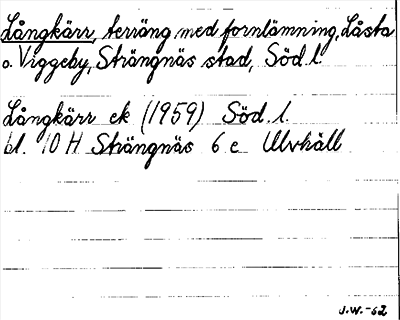 Långkärr, terräng med fornlämning, Låsta
o. Viggeby, Strängnäs stad, Söd. l.
Långkärr ek (1959) Söd. l.
bl. 10 H Strängnäs 6 e Ulvhäll
J.W.-62